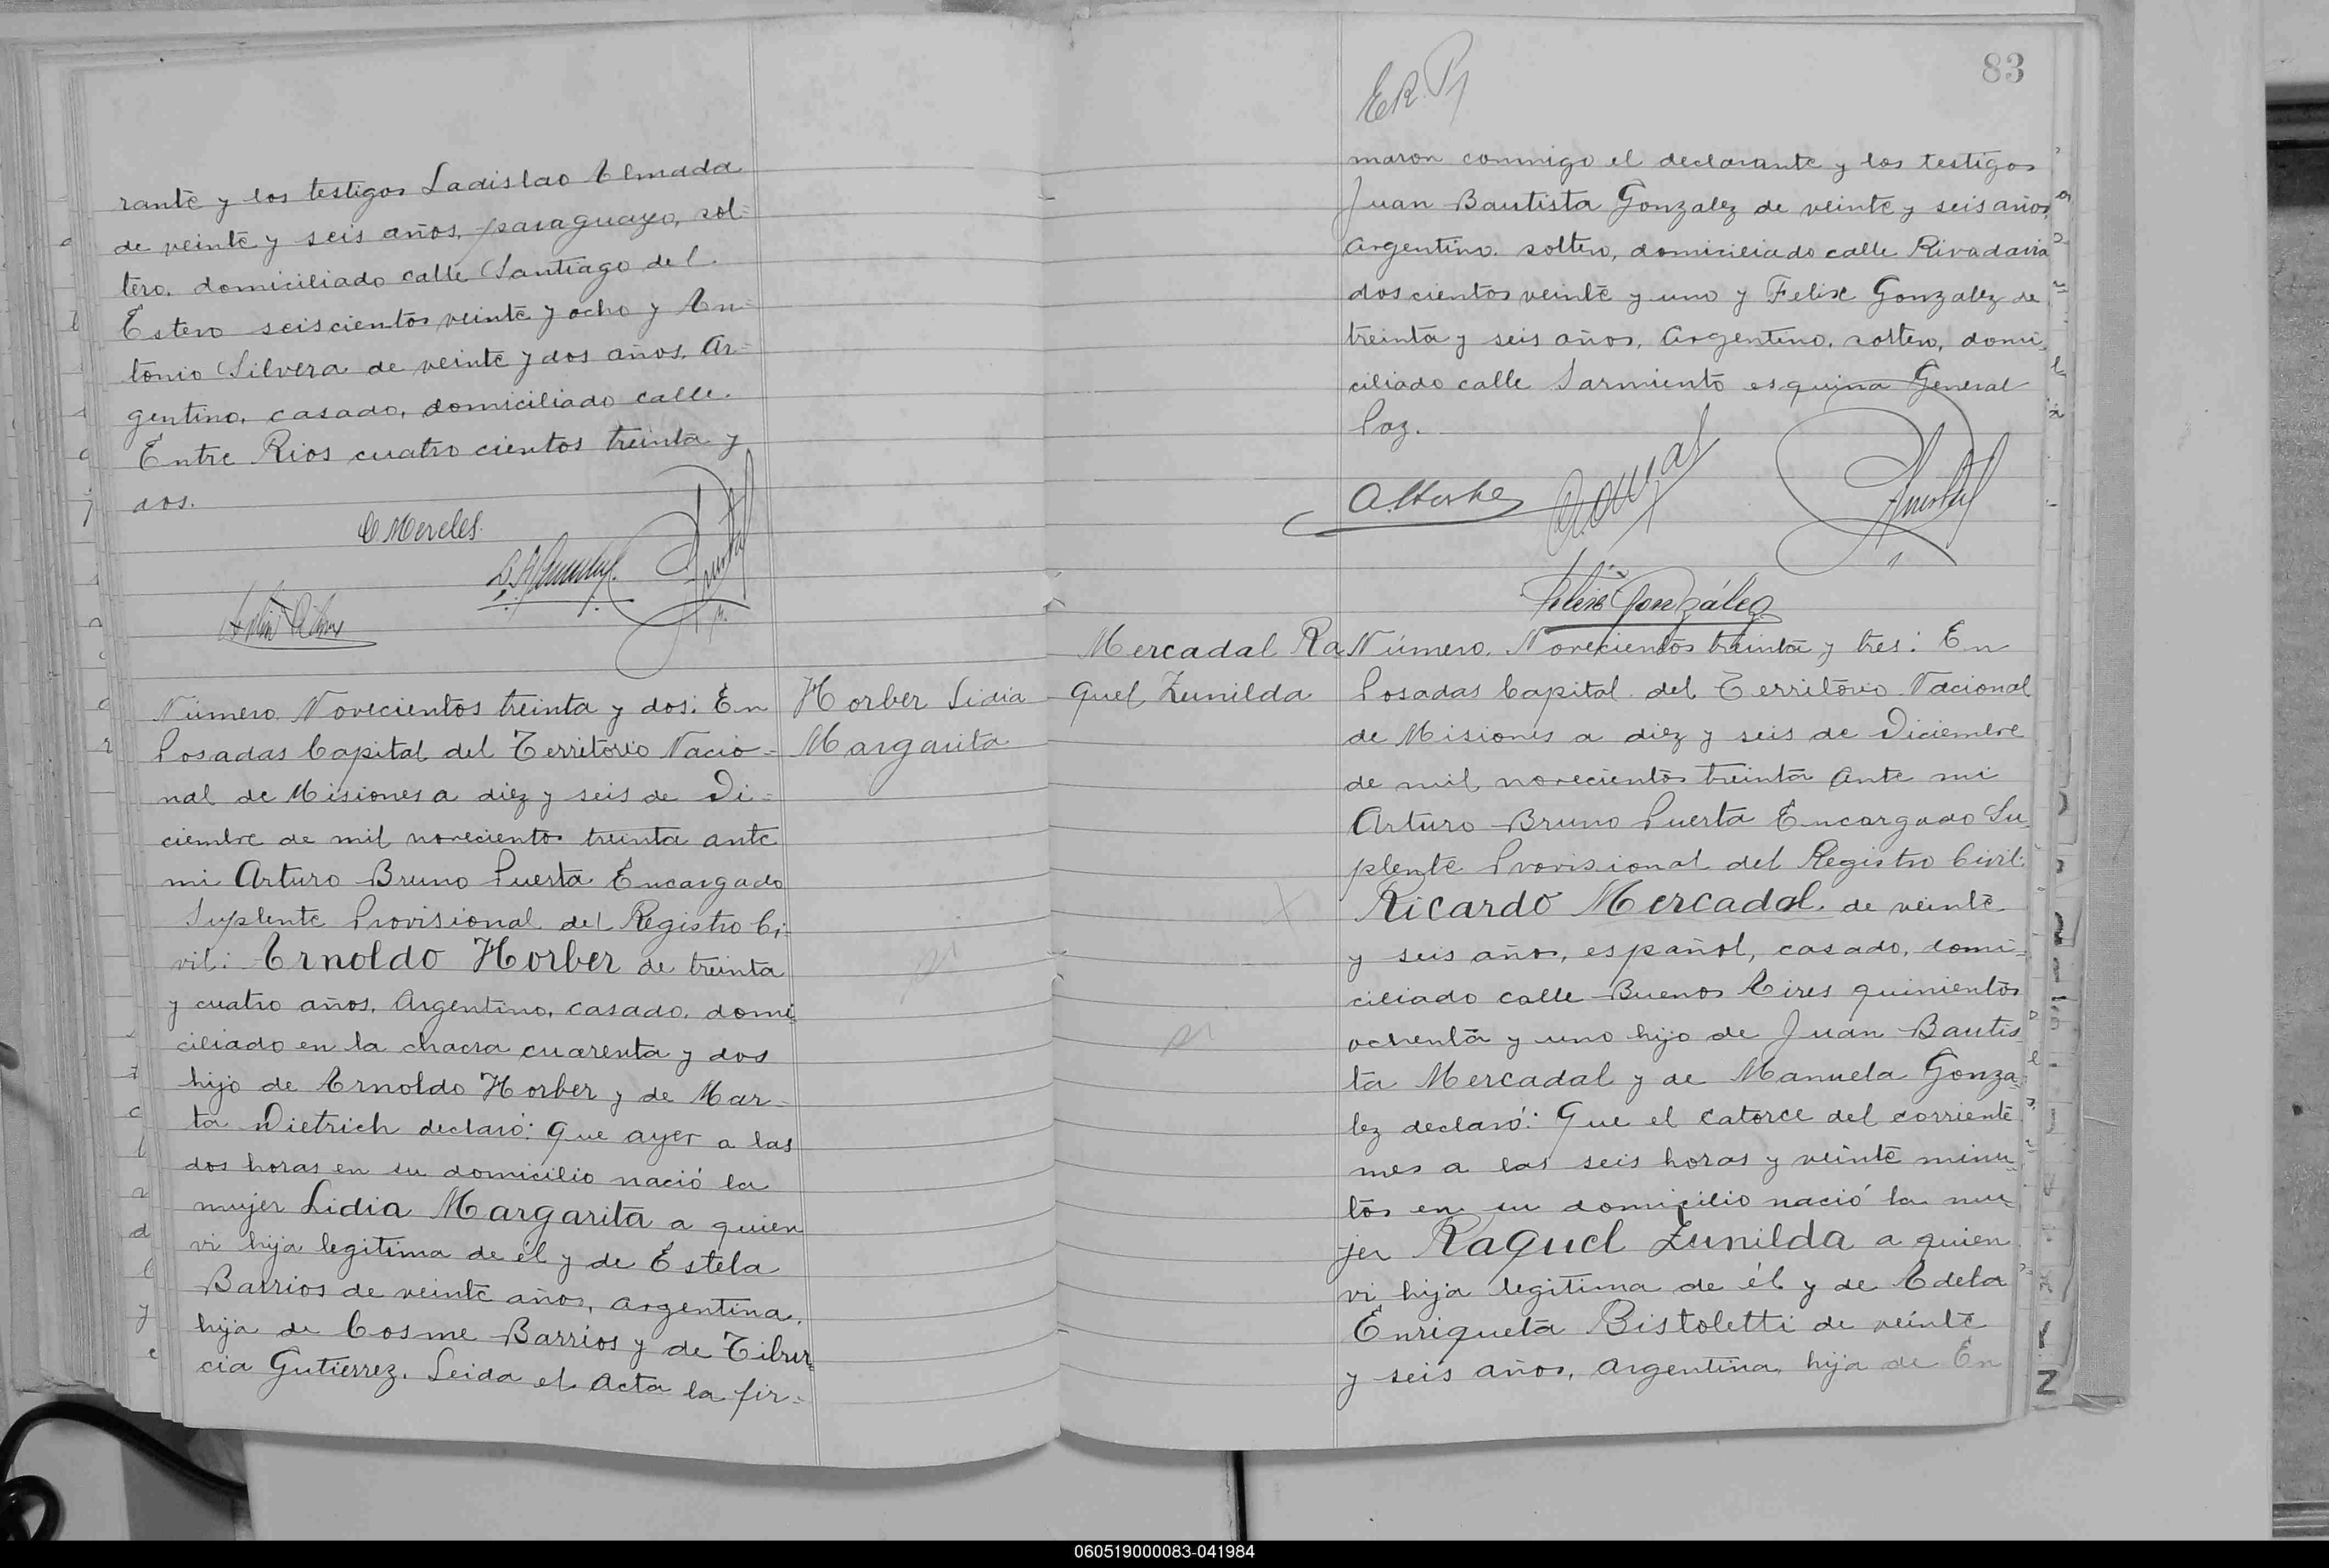 rante y los testigos Ladislao Almada
de veinte y seis años, paraguayo, sol=
tero, domiciliado calle Santiago del
Estero seiscientos veinte y ocho y An=
tonio Silvera de veinte y dos años, Ar=
gentino, casado, domiciliado calle.
Entre Rios cuatro cientos treinta y
dos.
C Mereles.
Número Novecientos treinta y dos: En
Posadas Capital del Territorio Nacio=
nal de Misiones a diez y seis de Di=
ciembre de mil novecientos treinta ante
mi Arturo Bruno Puerta Encargado
Suplente Provisional del Registro Ci=
vil: Arnoldo Horber de treinta
y cuatro años, Argentino, casado, domi=
ciliado en la chacra cuarenta y dos
hijo de Arnoldo Horber y de Mar=
ta Dietrich declaró: Que ayer a las
dos horas en su domicilio nació la
mujer Lidia Margarita a quien
vi hija legitima de él y de Estela
Barrios de veinte años, argentina,
hija de Cosme Barrios y de Tibur=
cia Gutierrez. Leida el Acta la fir=
Horber Lidia
Margarita
83
E.R.P.
maron conmigo el declarante y los testigos
Juan Bautista Gonzalez de veinte y seis años
Argentino. soltero, domiciliado calle Rivadavia
doscientos veinte y uno y Felix Gonzalez de
treinta y seis años, Argentino, soltero, domi=
ciliado calle Sarmiento esquina General
Paz.
Felix González
Mercadal Ra
quel Zunilda
Número. Novecientos treinta y tres: En
Posadas Capital del Territorio Nacional
de Misiones a diez y seis de Diciembre
de mil novecientos treinta Ante mi
Arturo Bruno Puerta Encargado Su=
plente Provisional del Registro Civil:
Ricardo Mercadal de veinte
y seis años, español, casado, domi=
ciliado calle Buenos Aires quinientos
ochenta y uno hijo de Juan Bautis
ta Mercadal y de Manuela Gonza=
lez declaró: Que el catorce del corriente
mes a las seis horas y veinte minu=
tos en su domicilio nació la mu=
jer Raquel Zunilda a quien
vi hija legitima de él y de Adela
Enriqueta Bistoletti de veinte
y seis años, Argentina, hija de En
060519000083-041984